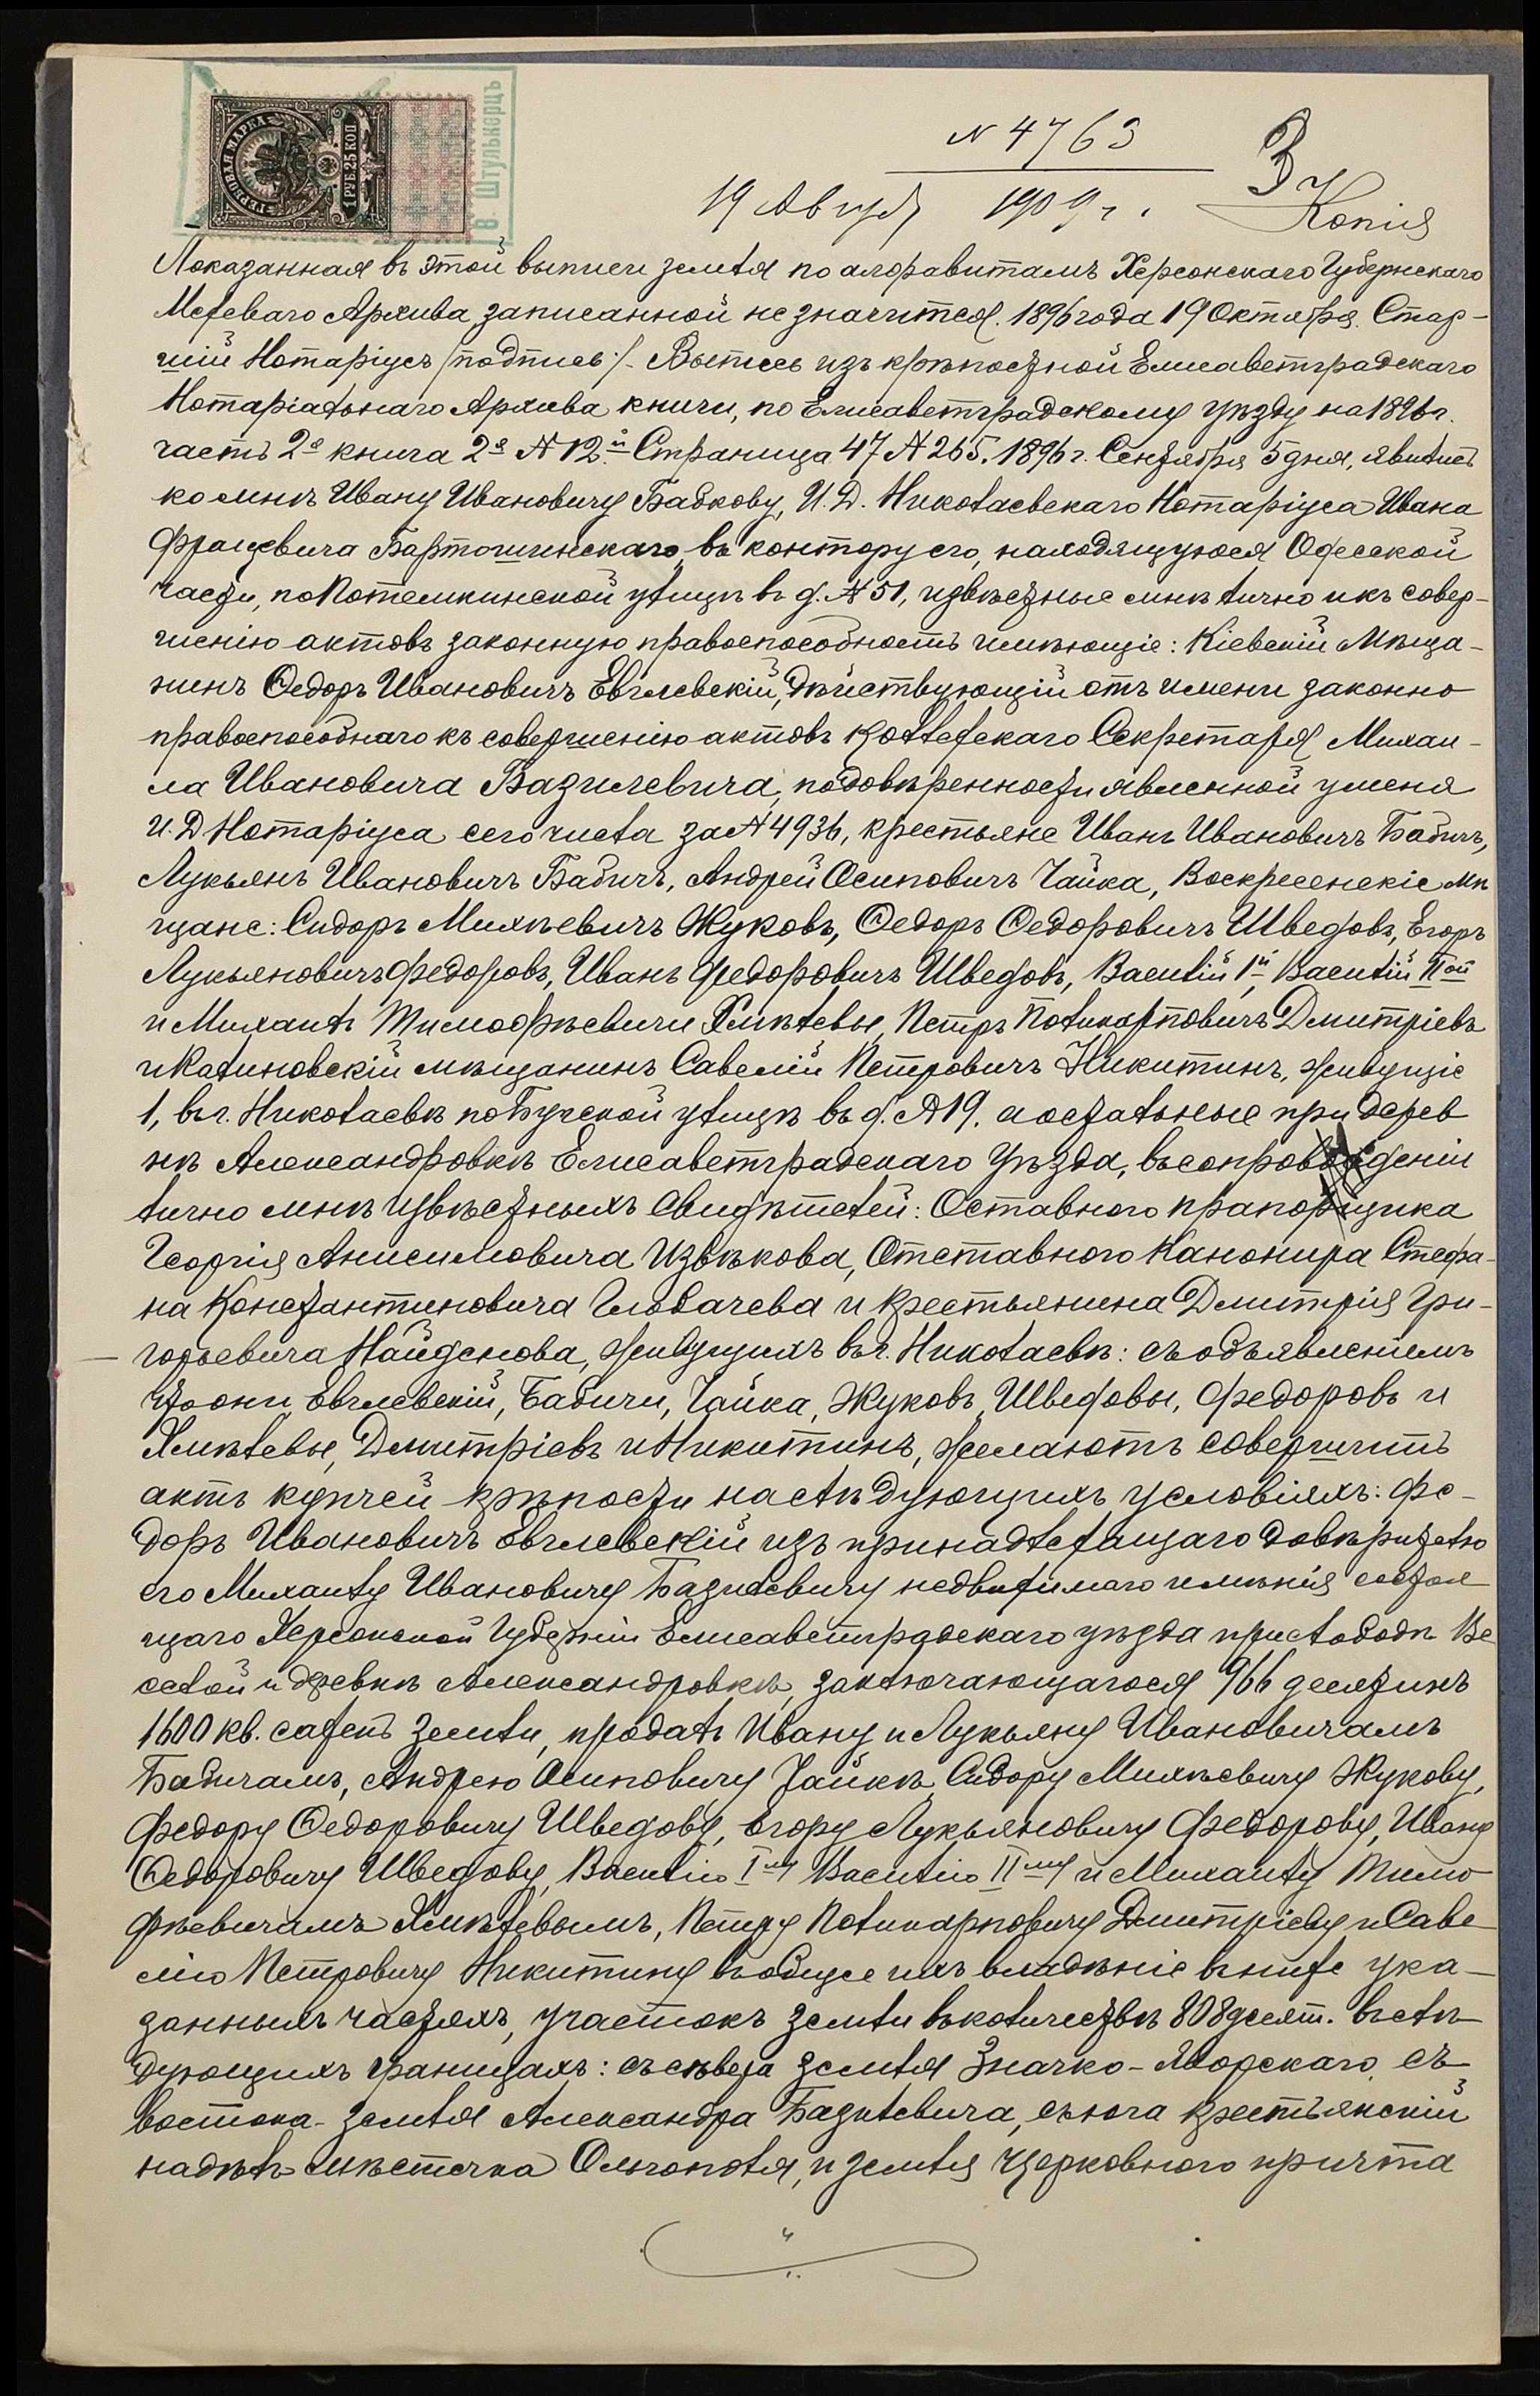 ГЕРБОВАЯ МАРКА
1 РУБ. 25 КОП
В. Штулькерцъ
N 4763
3
19 Август 1909 г.
Копія
Показанная въ этой выписи земля по алфавитамъ Херсонскаго Губернскаго
Межеваго Архива записанной не значится. 1896 года 19 Октября. Стар-
шій Нотаріусъ /подпись/. Выпись изъ крѣпостной Елисаветградскаго
Нотаріальнаго Архива книги, по Елисаветградскому уѣзду на 1896 г.
часть 2я книга 2я № 12й Страница 47 № 265. 1896 г. Сентября 5 дня, явились
ко мнѣ Ивану Ивановичу Бабкову, И. Д. Николаевскаго Нотаріуса Ивана
Францевича Бартошинскаго, въ контору его, находящуюся Одесской
части, по Потемкинской улицѣ въ д. № 51, извѣстные мнѣ лично и къ совер-
шенію актовъ законную правоспособность имѣющіе: Кіевскій Мѣща-
нинъ Ѳедоръ Ивановичъ Евглевскій, дѣйствующій отъ имени законно
правоспособнаго къ совершенію актовъ Коллежскаго Секретаря Михаи-
ла Ивановича Базилевича, по довѣренности явленной у меня
И. Д Нотаріуса сего числа за № 4936, крестьяне Иванъ Ивановичъ Бабичъ,
Лукьянъ Ивановичъ Бабичъ, Андрей Осиповичъ Чайка, Воскресенскіе мѣ
щане: Сидоръ Михѣевичъ Жуковъ, Ѳедоръ Ѳедоровичъ Шведовъ, Егоръ
Лукьяновичъ Федоровъ, Иванъ Федоровичъ Шведовъ, Василій 1й, Василій IIой
и Михаилъ Тимофѣевичи Хмѣлевы, Петръ Поликарповичъ Дмитріевъ
и Калиновскій мѣщанинъ Савелій Петровичъ Никитинъ, живущіе
1, въ г. Николаевѣ по Бугской улицѣ въ д. № 19. а остальные при дерев
нѣ Александровкѣ Елисаветградскаго Уѣзда, въ сопровожденіи
лично мнѣ извѣстныхъ свидѣтелей: Отставного прапорщика
Георгія Анисимовича Извѣкова, Отставного Канонира Стефа-
на Константиновича Головачева и крестьянина Дмитрія Гри-
горьевича Найденова, живущихъ въ г. Николаевѣ: съ объявленіемъ
что они Евглевскій, Бабичи, Чайка, Жуковъ, Шведовы, Федоровъ и
Хмѣлевы, Дмитріевъ и Никитинъ, желаютъ совершить
актъ купчей крѣпости на слѣдующихъ условіяхъ: Фе-
доръ Ивановичъ Евглевскій изъ принадлежащаго довѣрителю
его Михаилу Ивановичу Базилевичу недвижимаго имѣнія состоя
щаго Херсонской Губерніи Елисаветградскаго уѣзда при слободѣ Ве
селой и деревнѣ Александровкѣ, заключающагося 966 десятинъ
1600 кв. сажень земли, продалъ Ивану и Лукьяну Ивановичамъ
Бабичамъ, Андрею Осиповичу Чайкѣ, Сидору Михѣевичу Жукову,
Федору Ѳедоровичу Шведову, Егору Лукьяновичу Федорову, Ивану
Ѳедоровичу Шведову, Василію Iму Василію IIму и Михаилу Тимо
фѣевичамъ Хмѣлевымъ, Петру Поликарповичу Дмитріеву и Саве
лію Петровичу Никитину въ общее ихъ владѣніе въ ниже ука-
занныхъ частяхъ, участокъ земли въ количествѣ 808 десят. въ слѣ
дующихъ границахъ: съ сѣвера земля Значко-Яворскаго, съ
востока - земля Александра Базилевича, съ юга крестьянскій
надѣлъ мѣстечка Ольгополя, и земля церковного причта